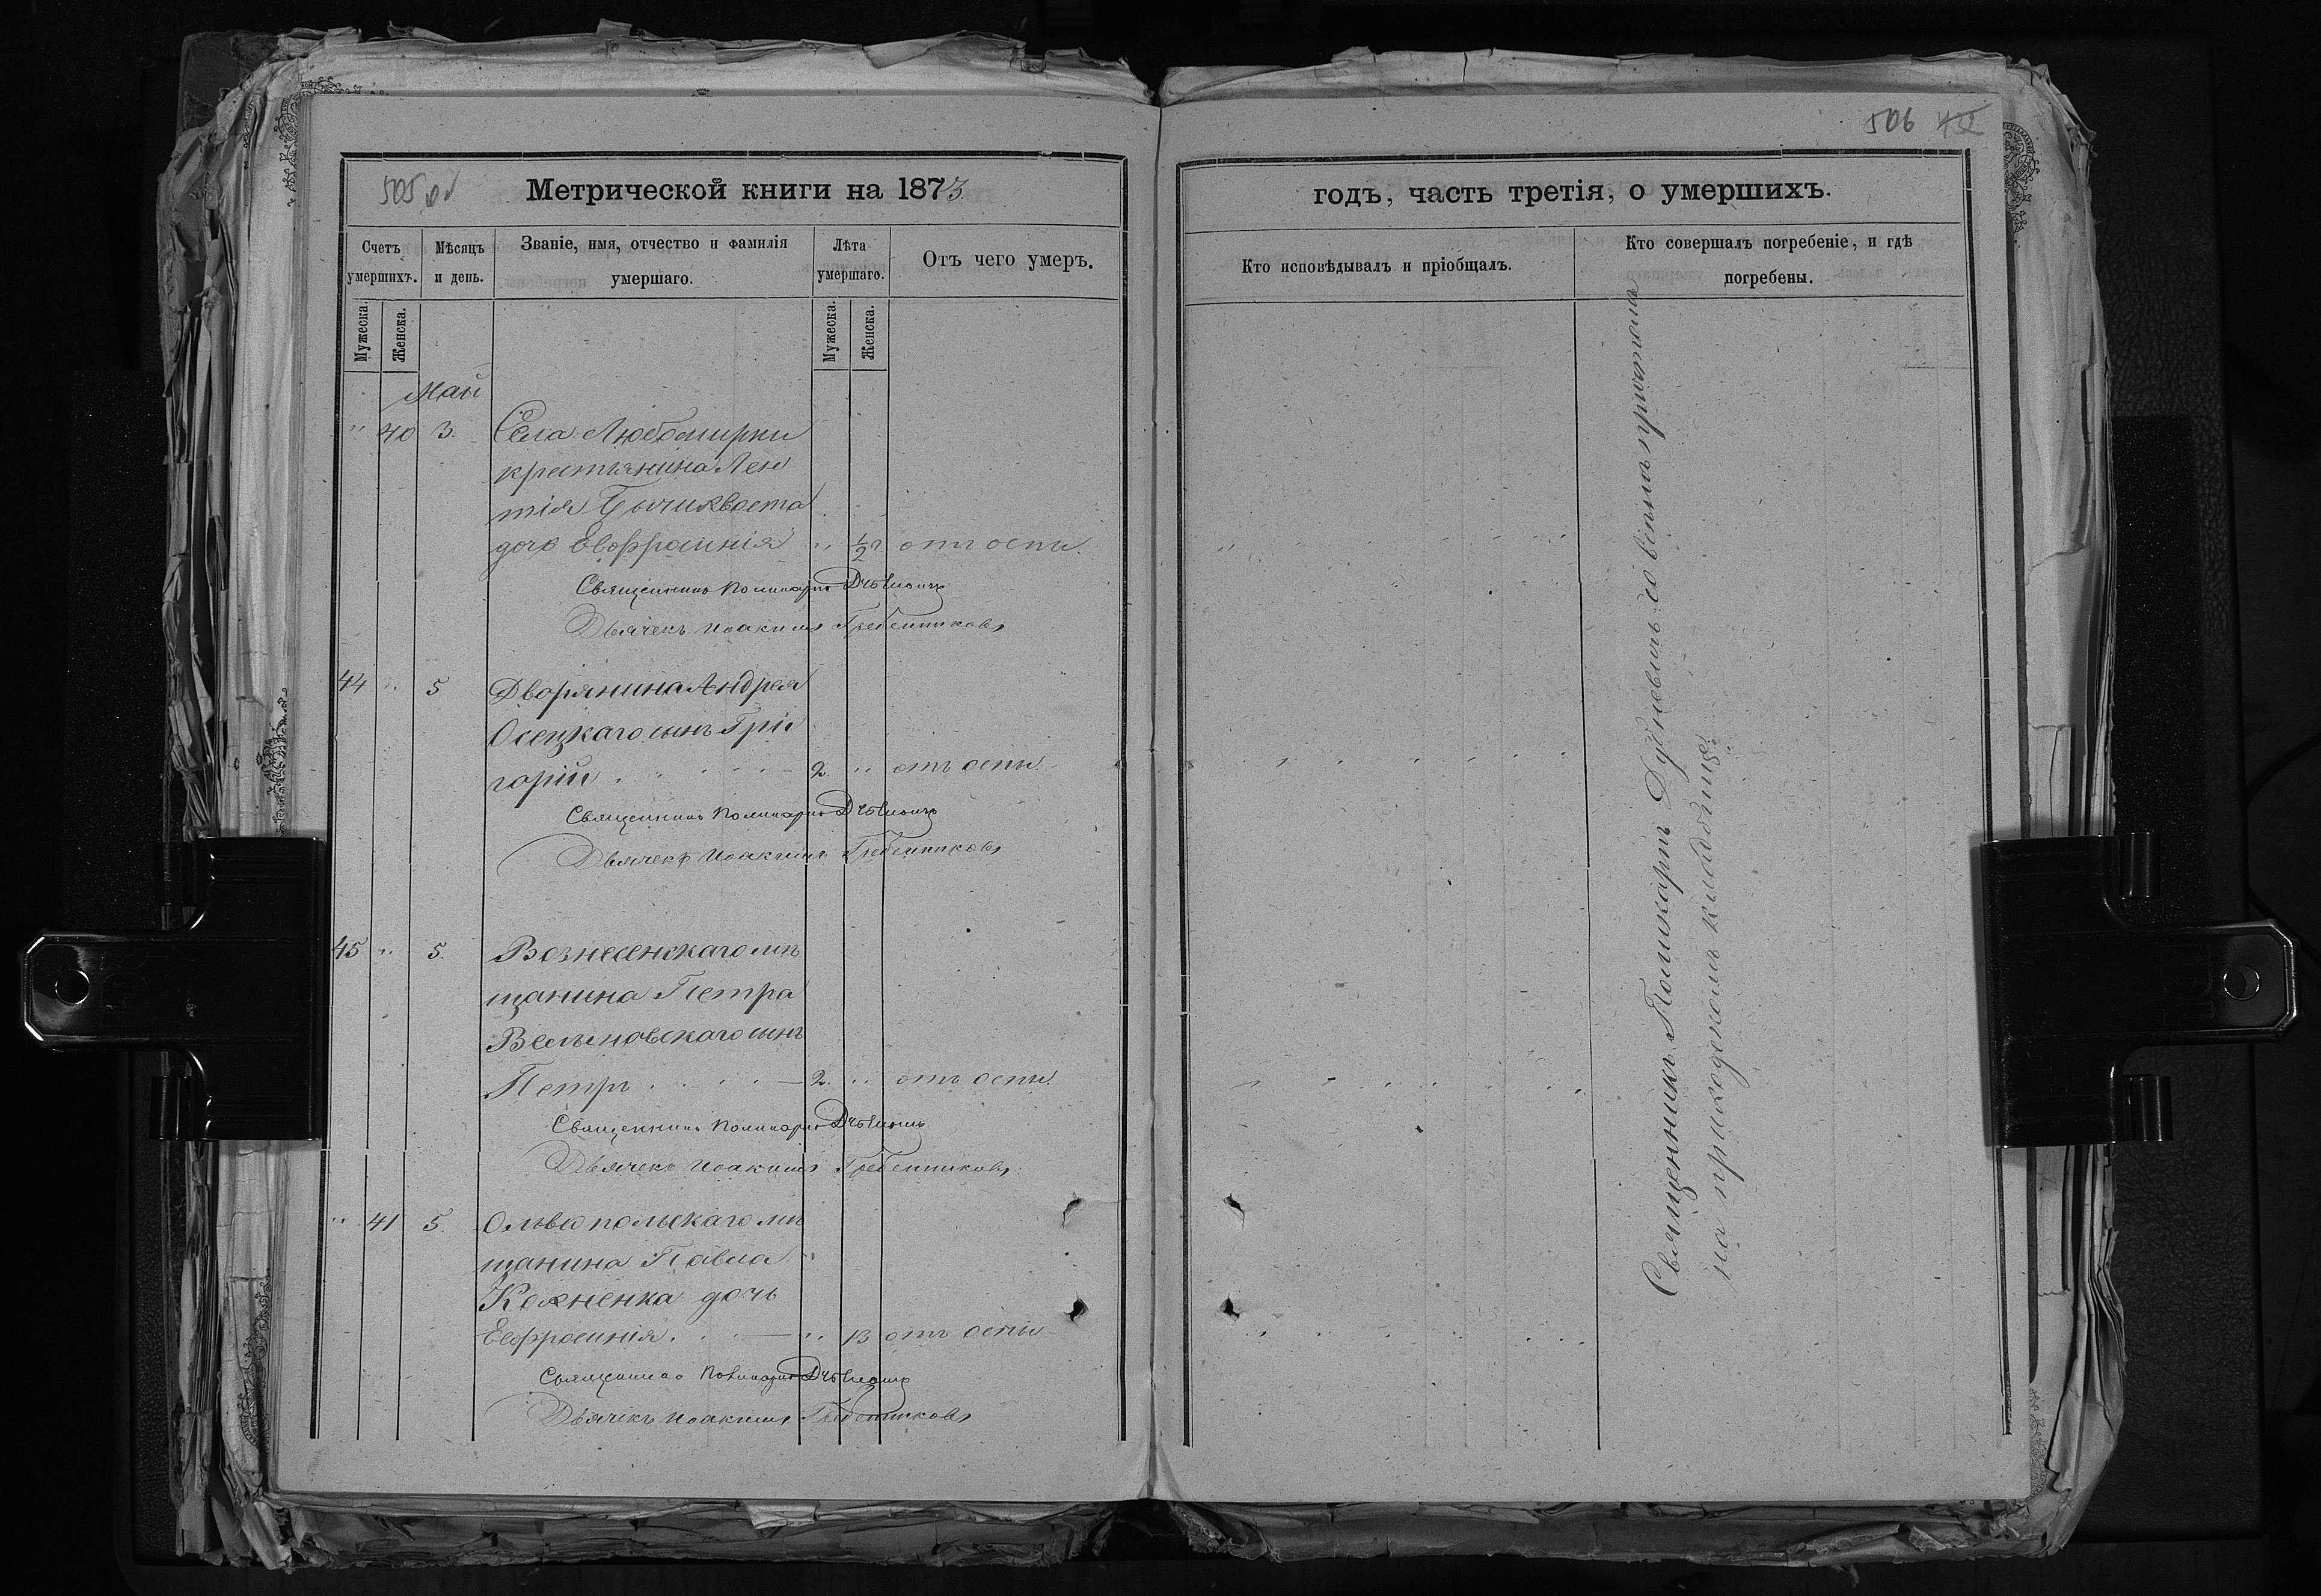 505 об
Метрической книги на 1873
Счетъ умершихъ.
Мѣсяцъ и день.
Званіе, имя, отчество и фамилія умершаго.
Лѣта умершаго.
Отъ чего умеръ.
Мужеска.
Женска.
Мужеска.
Женска.
Май
" 40 3. Села Любомирки
крестьянина Леон
тія Бычихвоста
дочь Евфросинія " ½ г отъ оспы.
Священникъ Поликарпъ Дубневичъ
Дьячекъ Иоакимъ Гребенниковъ
44 " 5 Дворянина Андрея
Осецкаго сынъ Гри
горій 2. " отъ оспы.
Священникъ Поликарпъ Дубневичъ
Дьячекъ Иоакимъ Гребенниковъ
45 " 5. Вознесенскаго мѣ
щанина Петра
сынъ
Петръ 2. " отъ оспы.
Священникъ Поликарпъ Дубневичъ
Дьячекъ Иоакимъ Гребенниковъ
" 41 5. Ольвопольскаго мѣ
щанина Павла
дочь
Евфросинія " 13 отъ оспы
Священникъ Поликарпъ Дубневичъ
Дьячекъ Иоакимъ Гребенниковъ
506 432
годъ, часть третія, о умершихъ.
Кто исповѣдывалъ и пріобщалъ.
Кто совершалъ погребеніе, и гдѣ погребены.
Священникъ Поликарпъ Дубневичъ со всѣмъ причтомъ
на приходскомъ кладбищѣ.